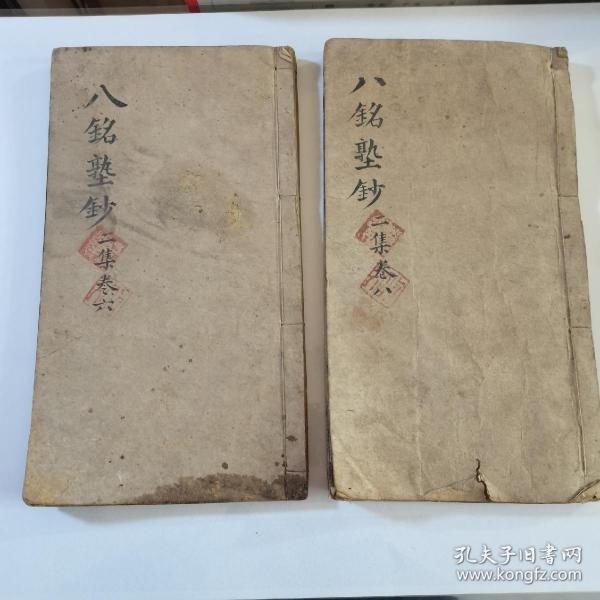 八銘塾鈔
二集卷六
八銘塾鈔
二集卷八
孔夫子旧书网
www.kongfz.com